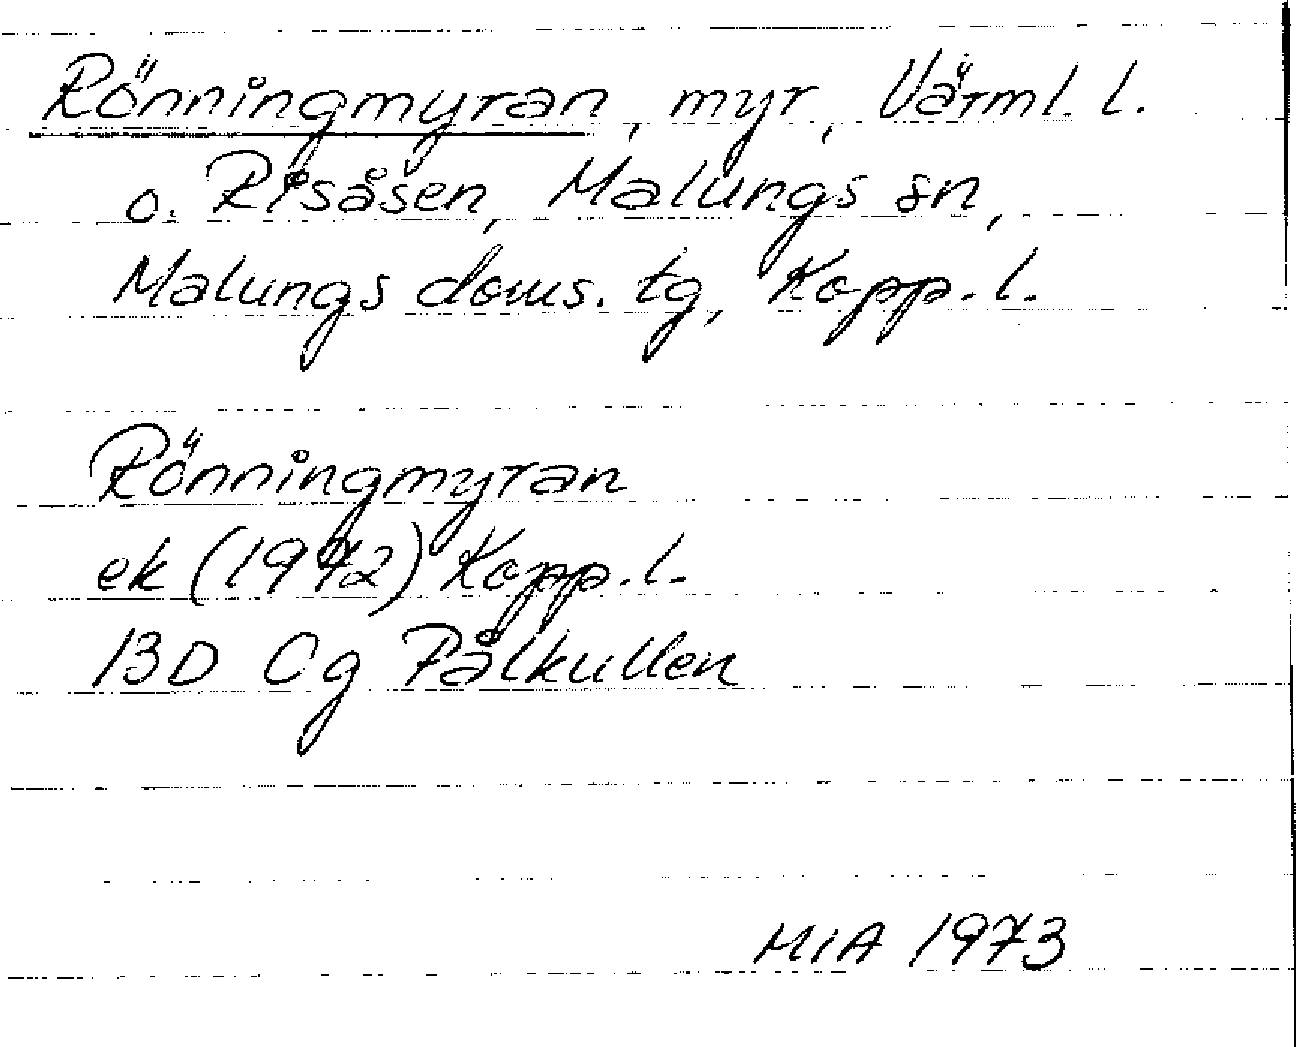 Rönningmyran, myr, Värml. l.
o. Risåsen, Malungs sn,
Malungs doms. tg, Kopp. l.
Rönningmyran
ek (1972) Kopp. l.
13D Cg Pålkullen
MIA 1973